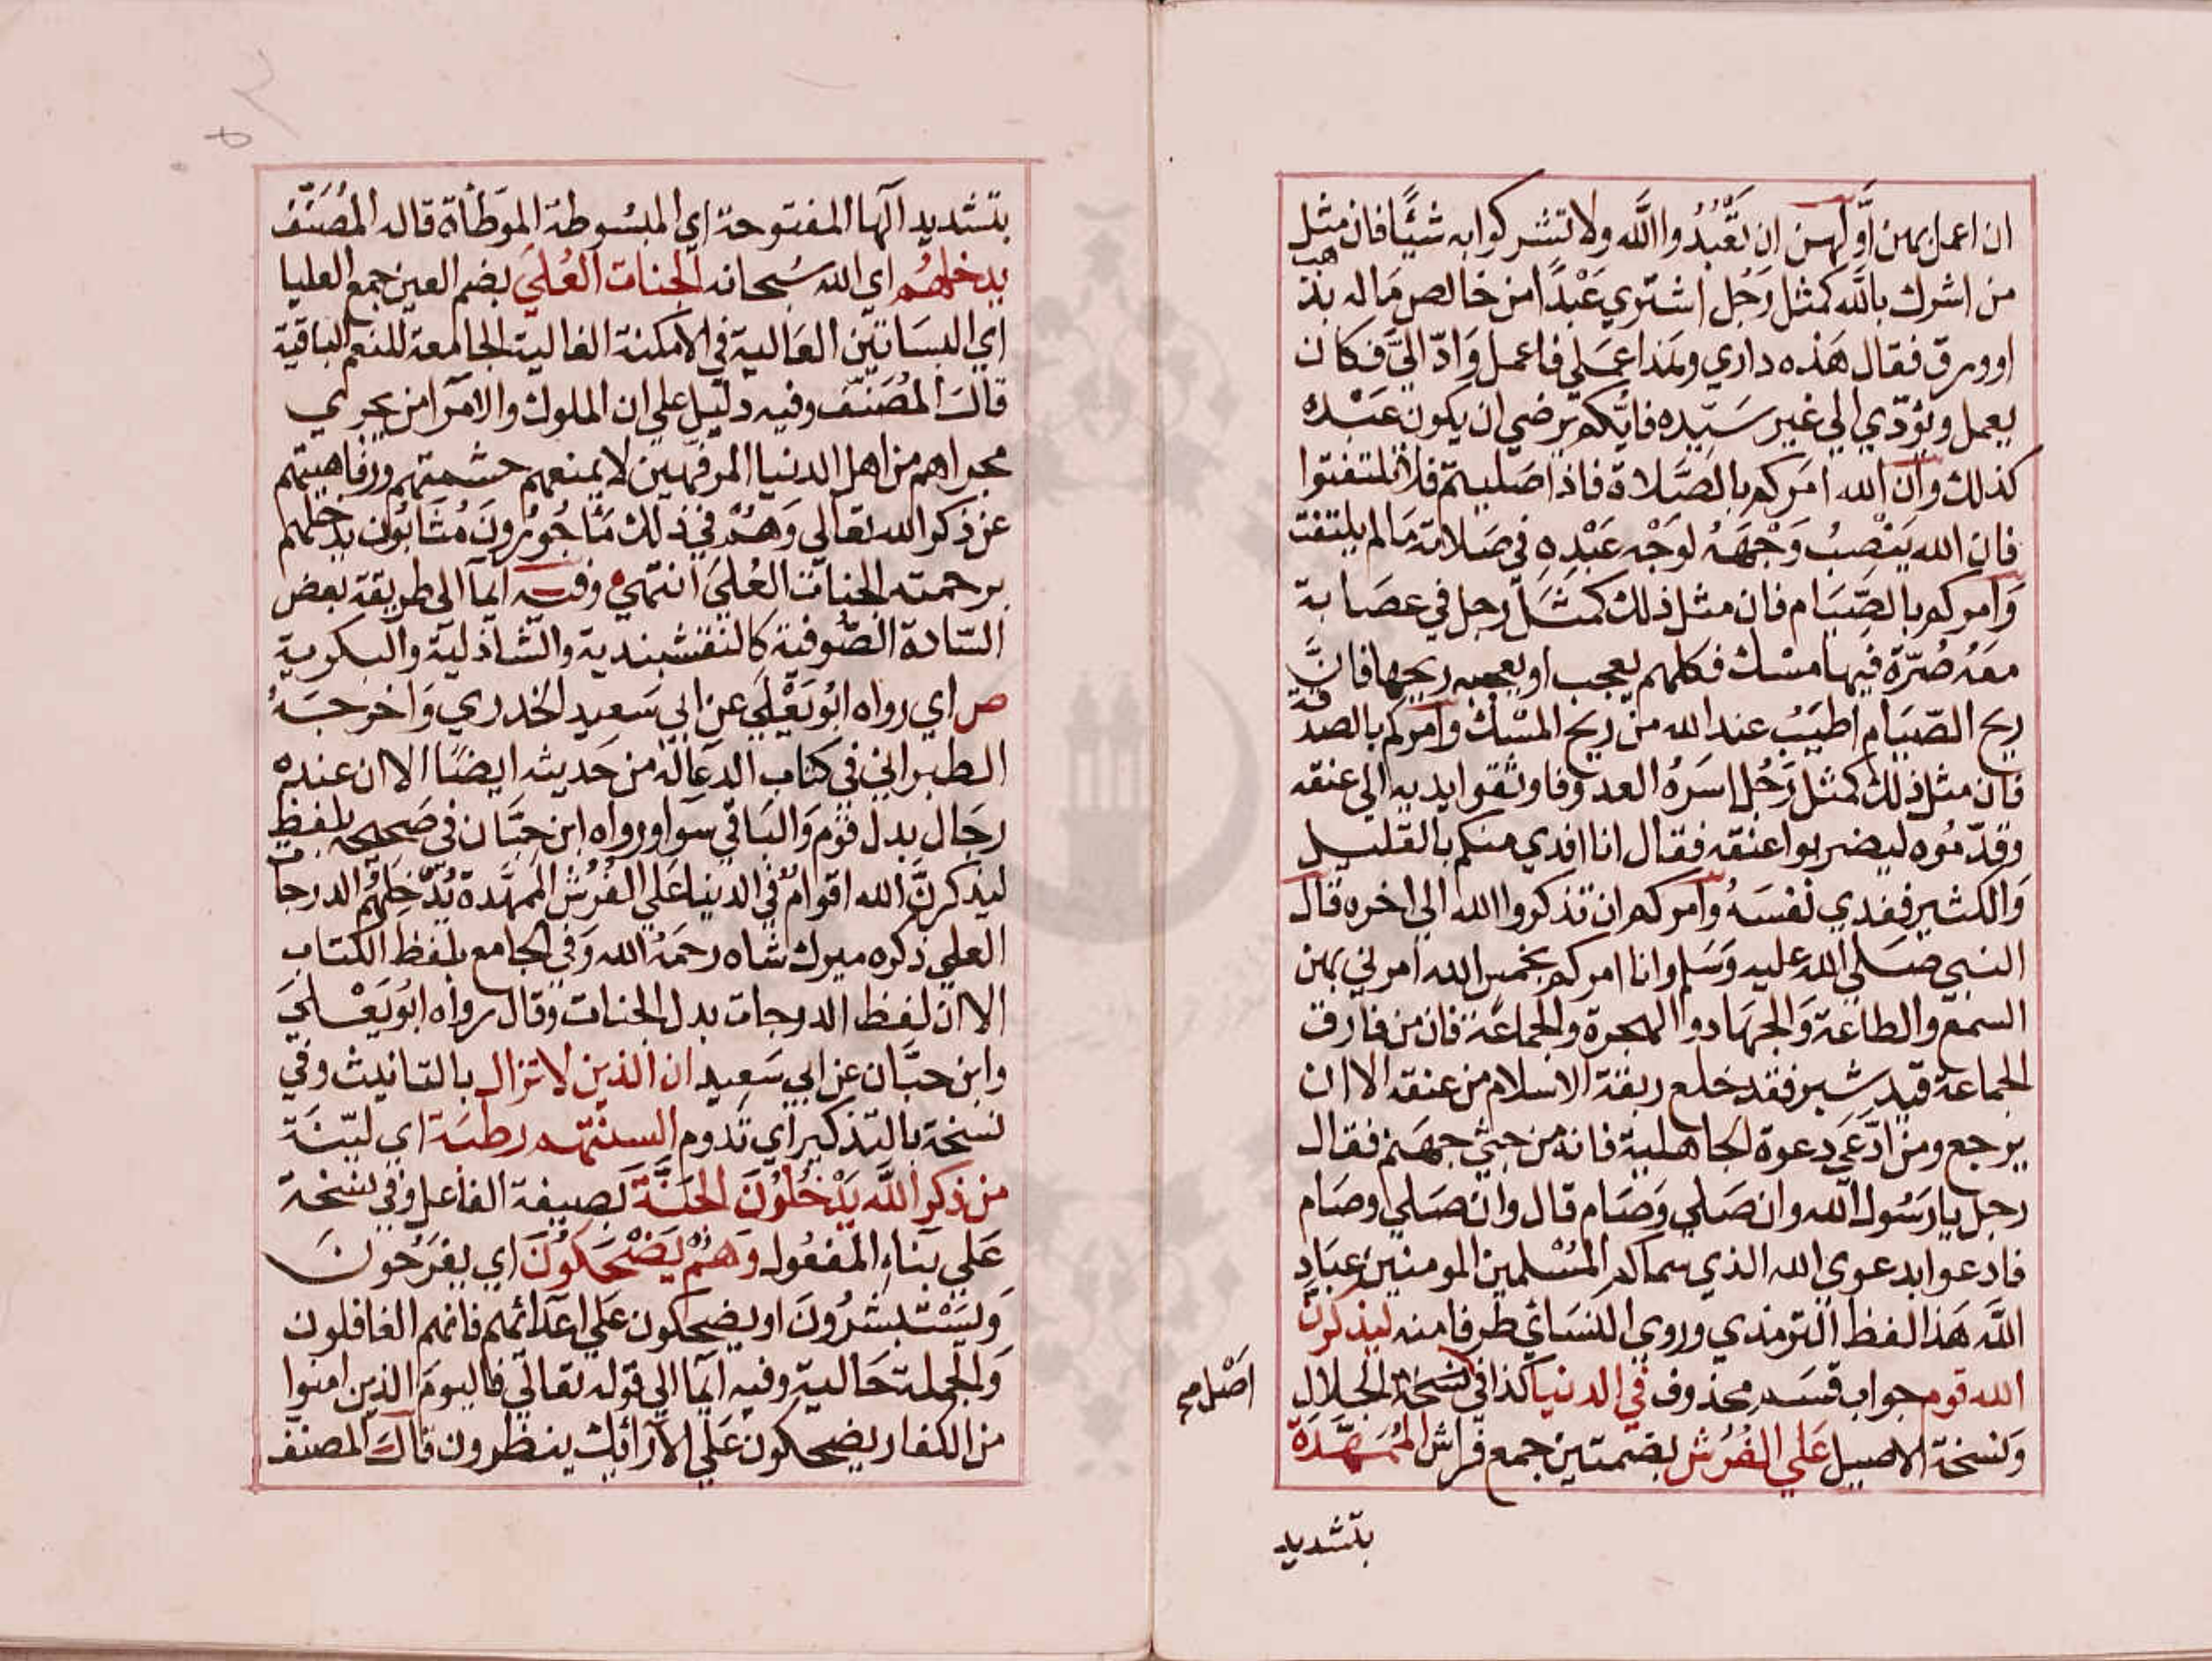 ان اعمل بهن أولهن ان تعبدوا الله ولا تشركوا به شيئا فان مثل
من اشرك بالله كمثل رجل اشتري عبدا من خالص ماله بذهب
او ورق فقال هذه داري وهذا عملي فاعمل وادّ اليّ فكان
يعمل ويؤدّي الي غير سيّده فايكم يرضي ان يكون عبده
كذلك وان الله امركم بالصلاة فاذا صليتم فلا تلتفتوا
فان الله ينصب وجهه لوجه عبده في صلاته مالم يلتفت
وامركم بالصيام فان مثل ذلك كمثل رجل في عصابة
معه صرّة فيها مسك فكلهم يعجب او يعجبه ريحها فانّ
ريح الصيام اطيب عند الله من ريح المسك وامركم بالصدقة
فان مثل ذلك كمثل رجل اسره العدو فاوثقوا يديه الي عنقه
وقدّموه ليضربوا عنقه فقال انا افدي منكم بالقليل
والكثير ففدي نفسه وامركم ان تذكروا الله الي اخره قال
النبي صلي الله عليه وسلم وانا امركم بخمس الله امرني بهن
السمع والطاعة والجهاد والهجرة والجماعة فان من فارق
الجماعة قيد شبر فقد خلع ربقة الاسلام من عنقه الا ان
يرجع ومن ادّعي دعوة الجاهلية فانه من جثي جهنم فقال
رجل يا رسول الله وان صلي وصام قال وان صلي وصام
فادعوا بدعوي الله الذي سماكم المسلمين المومنين عباد
الله هذا لفظ الترمذي وروي النسائي طرفا منه ليذكرن
الله قوم جواب قسم محذوف في الدنيا كذا في نسخة الجلال
اصل صح
ونسخة الاصيل علي الفرش بضمتين جمع فراش الممهّدة
بتشديد
بتشديد الها المفتوحة اي المبسوطة الموطأة قاله المصنّف
يدخلهم اي الله سبحانه الجنات العلي بضم العين جمع العليا
اي البساتين العالية في الامكنة الغالية الجامعة للنعم الباقية
قال المصنف وفيه دليل علي ان الملوك والامرا من يجري
مجراهم من اهل الدنيا المرفهين لا يمنعهم حشمتهم ورفاهيتهم
عن ذكر الله تعالي وهم في ذلك مأجورون مثابون يدخلهم
برحمته الجنات العلي انتهي وفيه ايمآ الي طريقة بعض
السّادة الصّوفية كالنقشبندية والشاذلية والبكرية
ص اي رواه ابو يعلي عن ابي سعيد الخدري واخرجه
الطبراني في كتاب الدعا له من حديثه ايضا الا ان عنده
رجال بدل قوم والباقي سوا ورواه ابن حبّان في صحيحه بلفظ
ليذكرنّ الله اقوام في الدنيا علي الفرش الممهّدة يدخلهم الدرجات
العلي ذكره ميرك شاه رحمه الله وفي الجامع بلفظ الكتاب
الا ان لفظ الدرجات بدل الجنات وقال رواه ابو يعلي
وابن حبّان عن ابي سعيد ان الذين لا تزال بالتانيث وفي
نسخة بالتذكير اي تدوم السنتهم رطبة اي ليّنة
من ذكر الله يدخلون الجنّة بصيغة الفاعل وفي نسخة
علي بناء المفعول وهم يضحكون اي يفرحون
ويستبشرون او يضحكون علي اعدائهم فانهم الغافلون
والجملة حالية وفيه ايمآ الي قوله تعالي فاليوم الذين امنوا
من الكفار يضحكون علي الارائك ينظرون قال المصنف